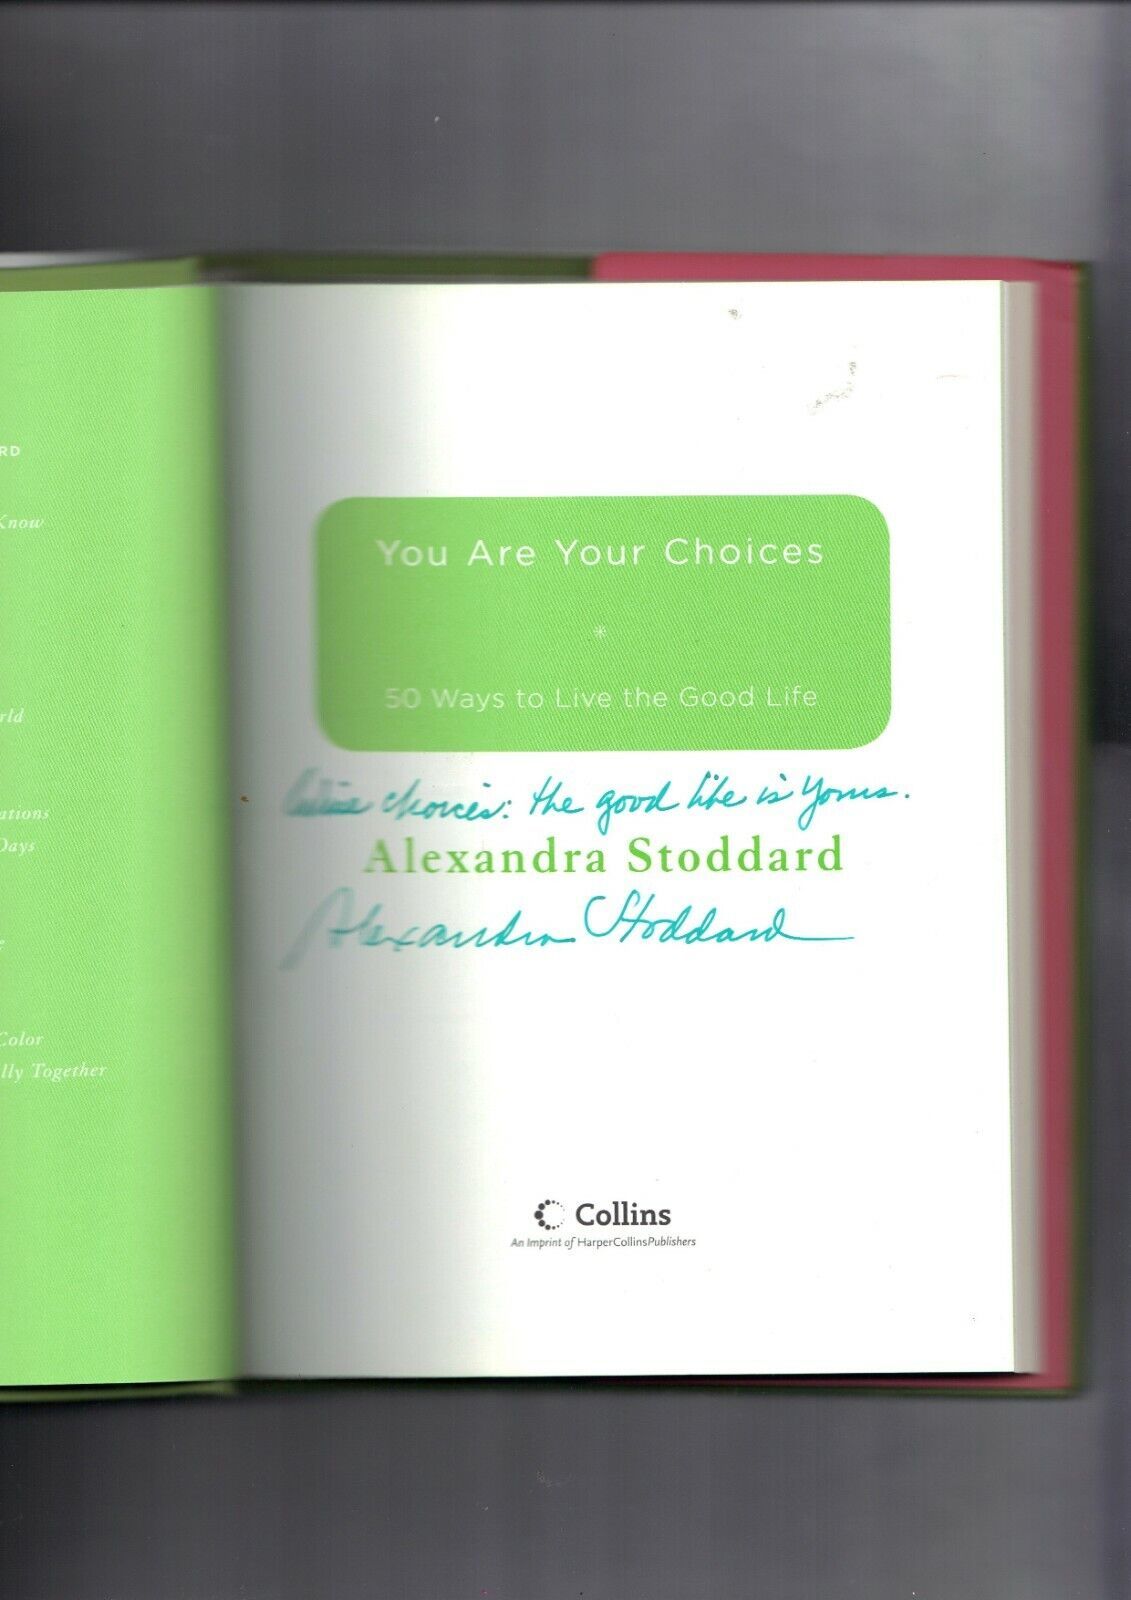 RD
Know
rld
ations
Days
Color
lly Together
You Are Your Choices
*
50 Ways to Live the Good Life
choices: the good life is yours.
Alexandra Stoddard
Alexandra Stoddard
Collins
An Imprint of HarperCollinsPublishers